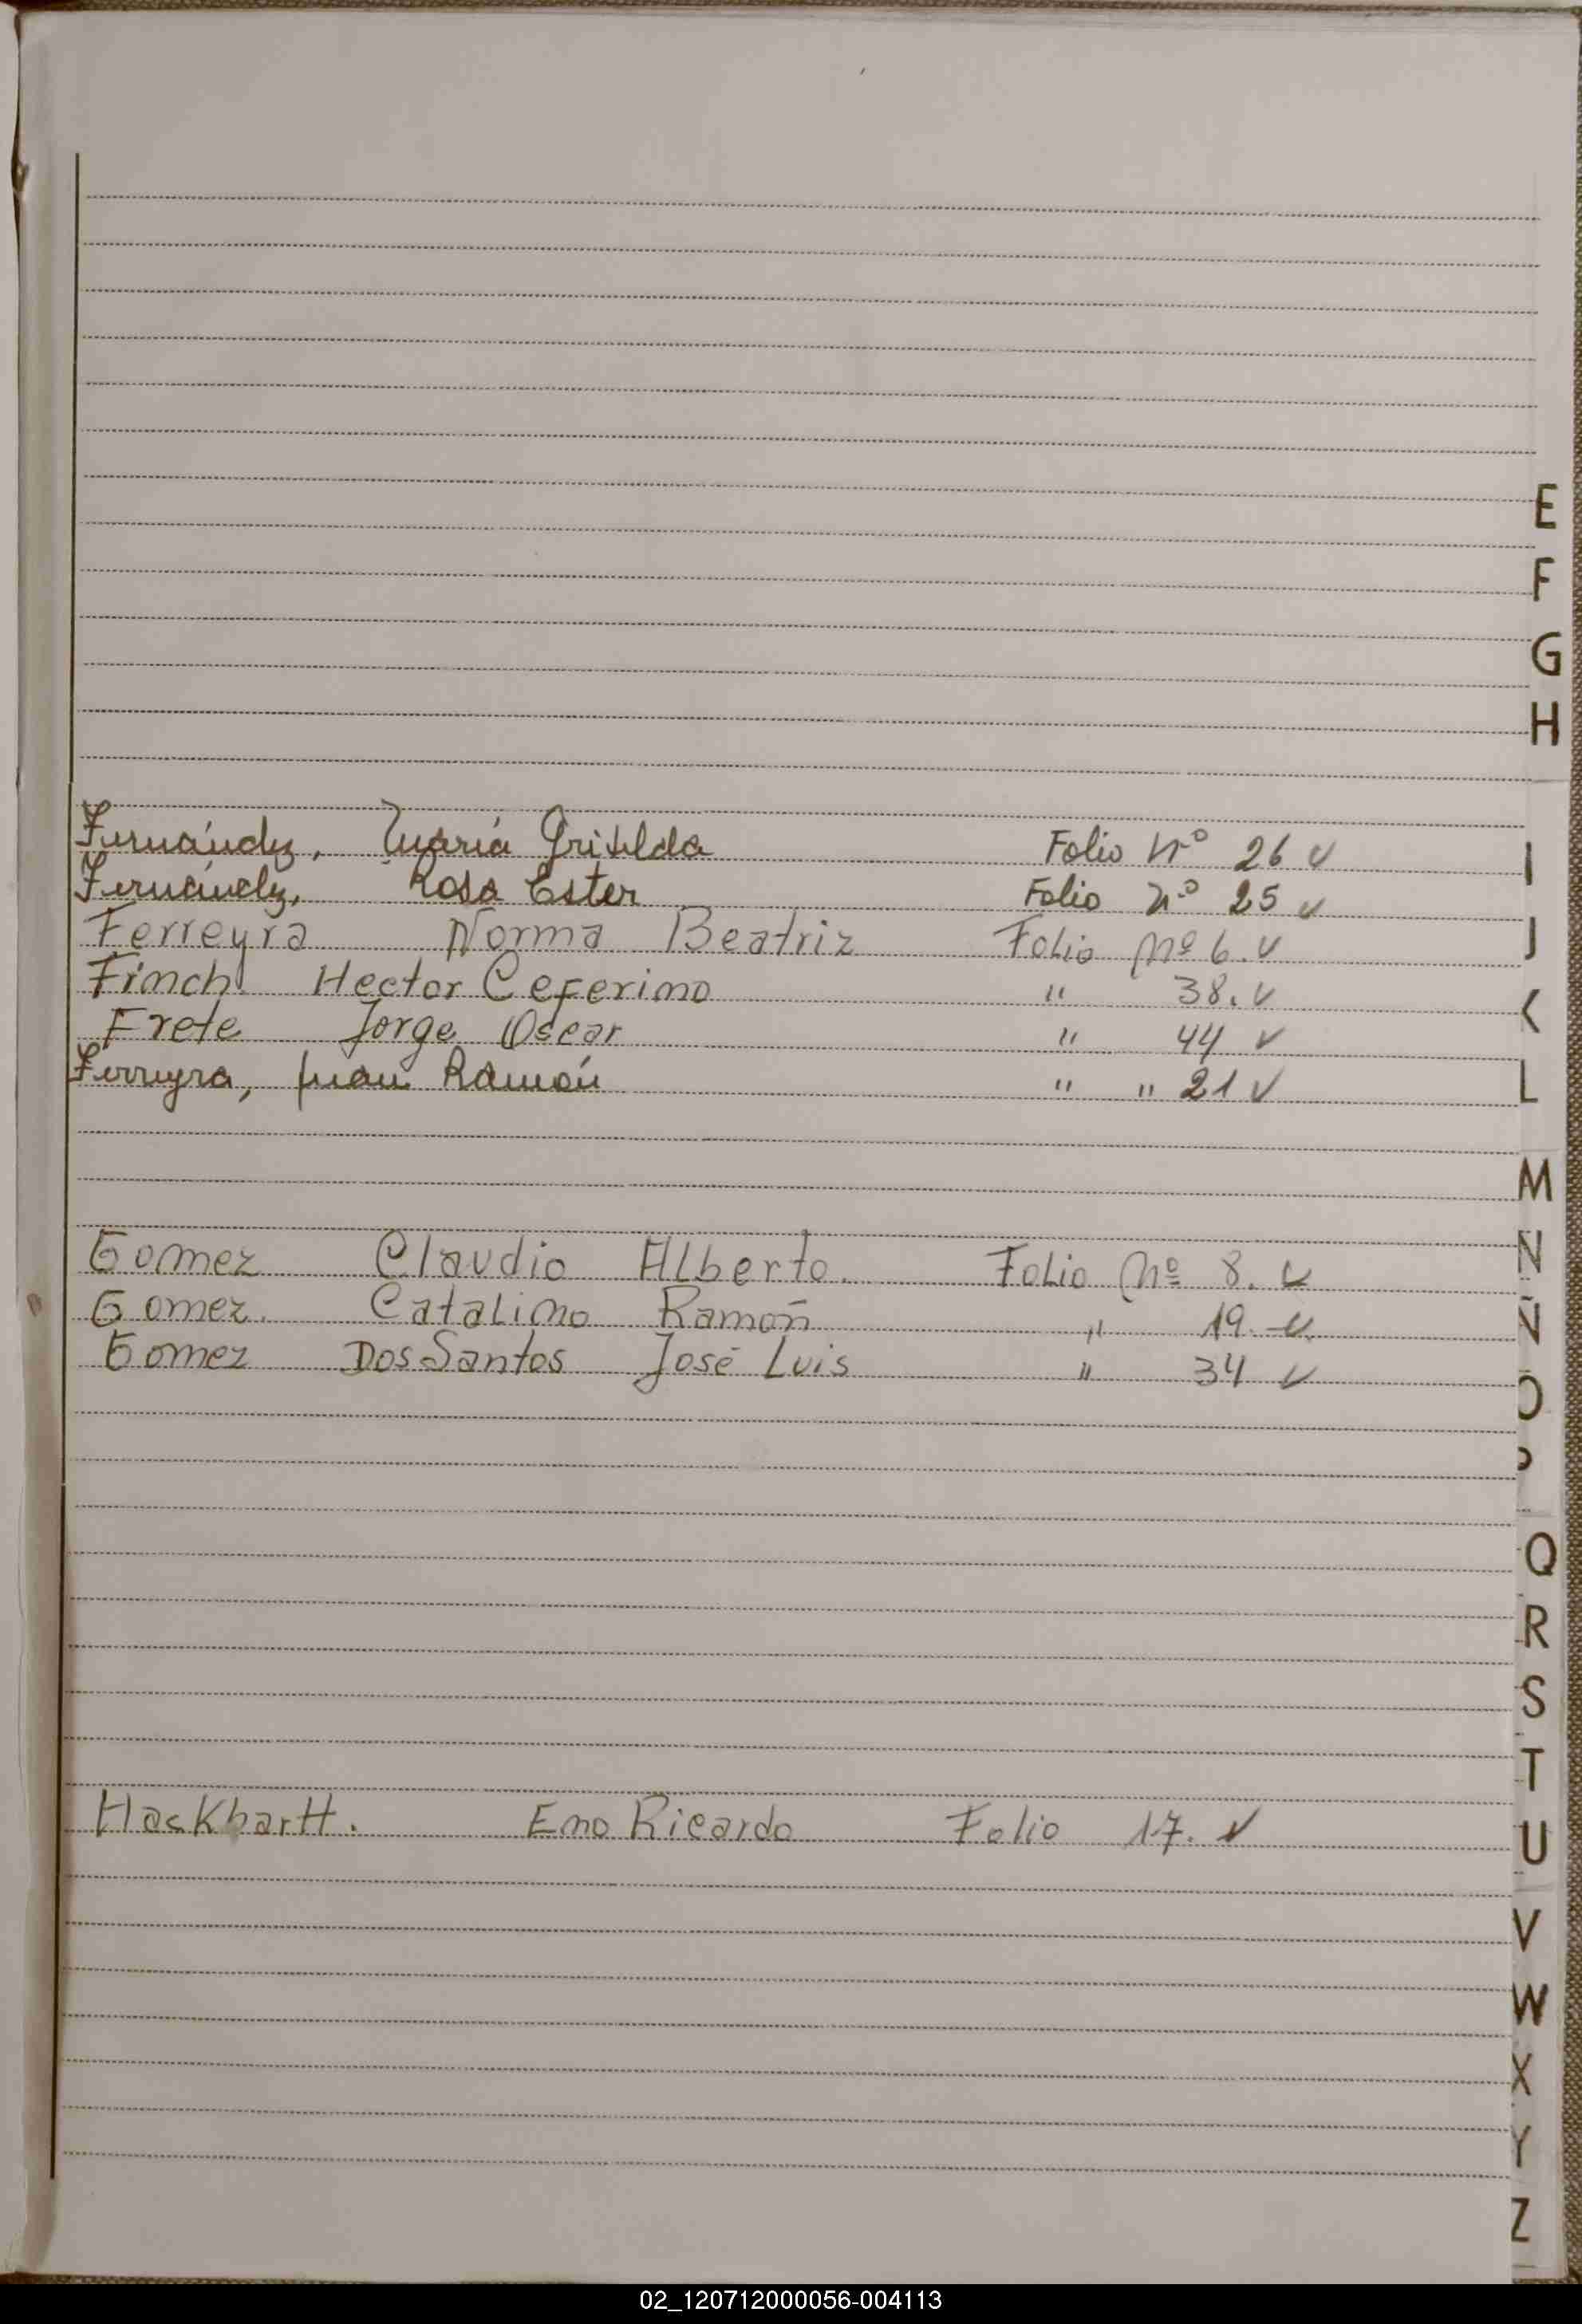 E
F
G
H
Fernández, María Griselda Folio Nº 26 v
Fernández, Rosa Ester Folio Nº 25 v
Ferreyra Norma Beatriz Folio Nº 6. v
Finch Hector Ceferino " 38. v
Frete Jorge Oscar " 44 v
Ferreyra, Juan Ramón " " 21 v
I
J
K
L
M
Gomez Claudio Alberto. Folio Nº 8. v
Gomez. Catalino Ramón " 19. v.
Gomez Dos Santos José Luis " 34 v
N
Ñ
O
P
Q
R
S
T
Hackbartt. Eno Ricardo Folio 17. v
U
V
W
X
Y
Z
02_120712000056-004113